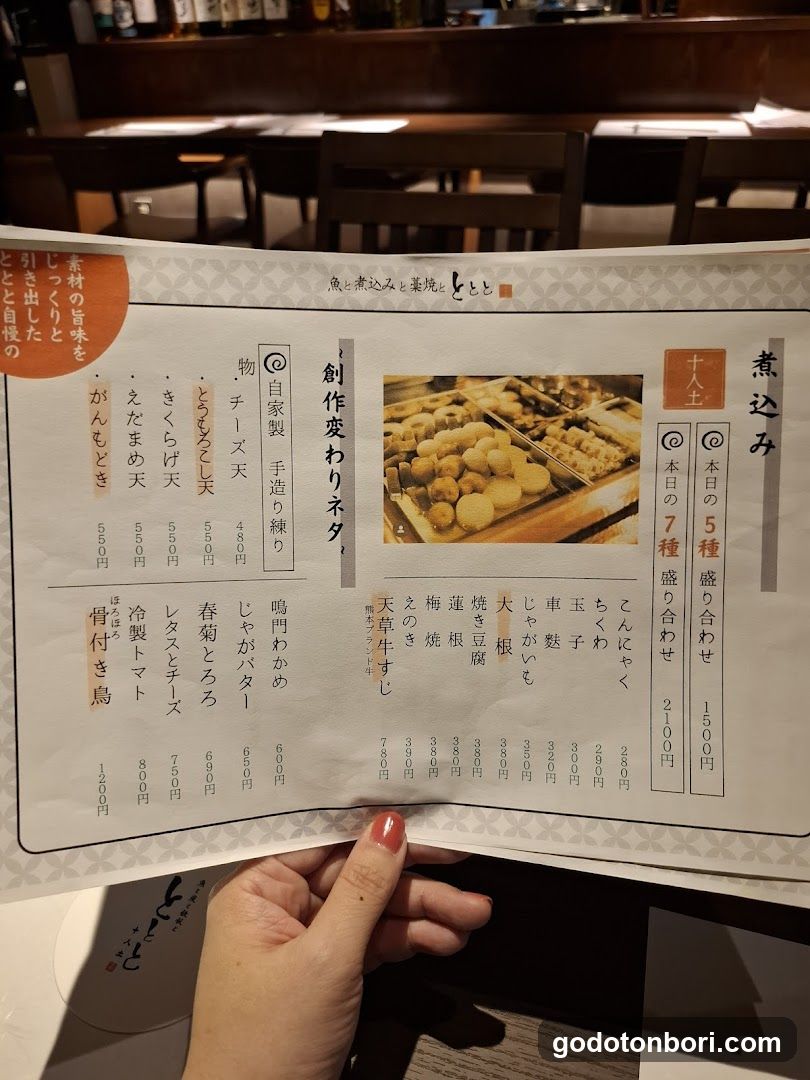 魚と煮込みと藁焼と ととと
煮込み
十人土
本日の5種盛り合わせ 1500円
本日の7種盛り合わせ 2100円
こんにゃく 280円
ちくわ 290円
玉子 300円
車麩 320円
じゃがいも 350円
大根 380円
焼き豆腐 380円
蓮根 380円
梅焼 380円
えのき 390円
天草牛すじ 780円
熊本ブランド牛
創作変わりネタ
自家製 手造り練り
物
・チーズ天 480円
・とうもろこし天 550円
・きくらげ天 550円
・えだまめ天 550円
・がんもどき 550円
鳴門わかめ 600円
じゃがバター 650円
春菊とろろ 690円
レタスとチーズ 750円
冷製トマト 800円
ほろほろ
骨付き鳥 1200円
素材の旨味を
じっくりと
引き出した
ととと自慢の
ととと
十人土
godotonbori.com